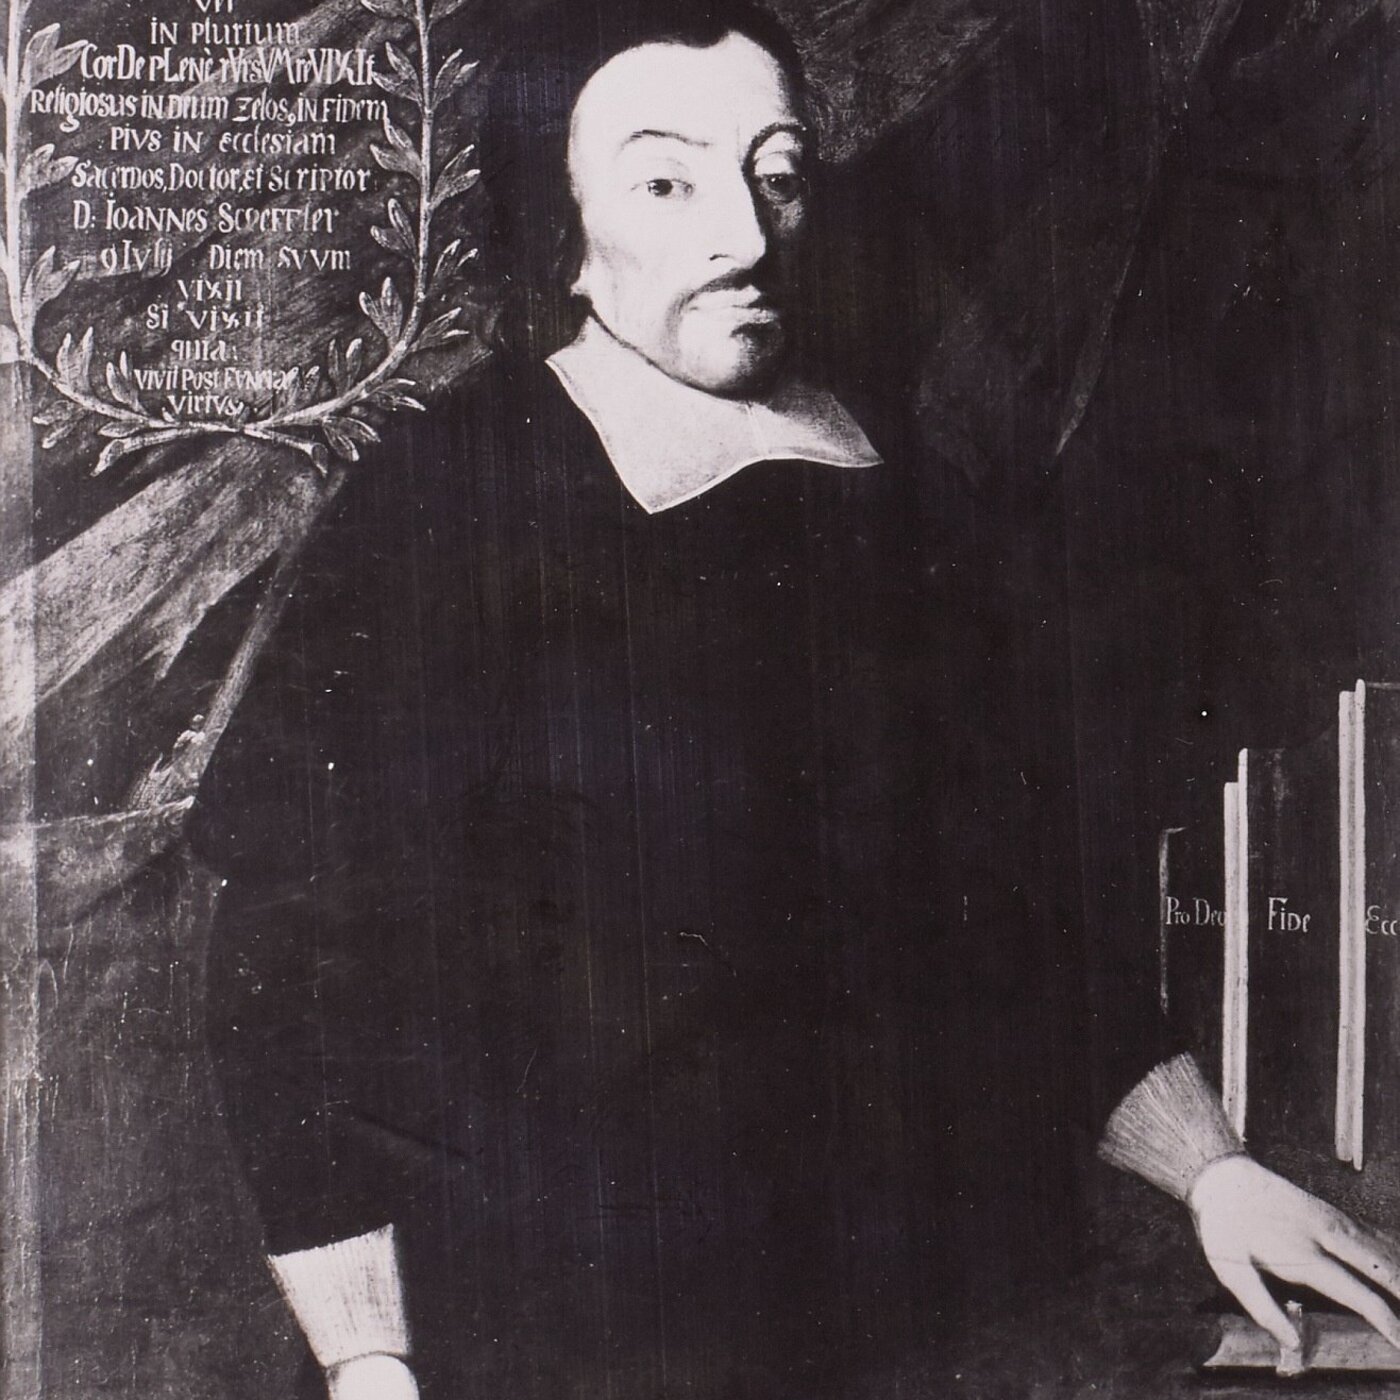 in plurium
CorDe pLenè
Religiosus in Deum Zelos, in Fidem
Pius in Ecclesiam
Sacerdos, Doctor, et Scriptor
D: Ioannes Scheffler
9 Iulij Diem Suum
vixit
Si vixit
quia:
vivit Post Funera
Virtus
Pro Deo
Fide
Ecc